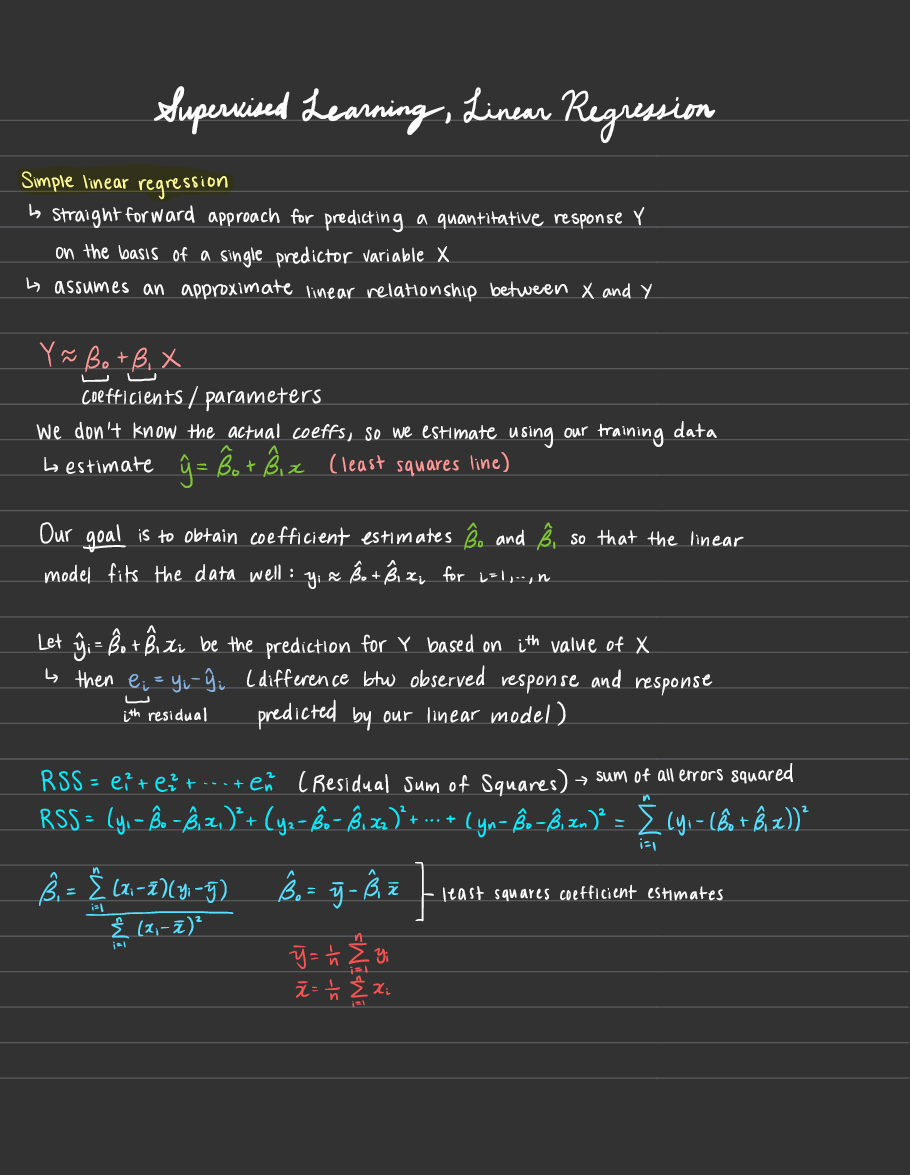 Supervised Learning, Linear Regression
Simple linear regression
↳ straightforward approach for predicting a quantitative response Y
on the basis of a single predictor variable X
↳ assumes an approximate linear relationship between X and Y
Y ≈ β₀ + β₁ X
coefficients / parameters
We don't know the actual coeffs, so we estimate using our training data
↳ estimate ŷ = β̂₀ + β̂₁ x (least squares line)
Our goal is to obtain coefficient estimates β̂₀ and β̂₁ so that the linear
model fits the data well: yᵢ ≈ β̂₀ + β̂₁ xᵢ for i=1,..,n
Let ŷᵢ = β̂₀ + β̂₁ xᵢ be the prediction for Y based on iᵗʰ value of X
↳ then eᵢ = yᵢ - ŷᵢ (difference btw observed response and response
iᵗʰ residual predicted by our linear model)
RSS = e₁² + e₂² + ··· + eₙ² (Residual Sum of Squares) → sum of all errors squared
RSS = (y₁ - β̂₀ - β̂₁x₁)² + (y₂ - β̂₀ - β̂₁x₂)² + ··· + (yₙ - β̂₀ - β̂₁xₙ)² = ∑ᵢ₌₁ⁿ (yᵢ - (β̂₀ + β̂₁x))²
β̂₁ = ∑ᵢ₌₁ⁿ (xᵢ - x̄)(yᵢ - ȳ) / ∑ᵢ₌₁ⁿ (xᵢ - x̄)² β̂₀ = ȳ - β̂₁ x̄ least squares coefficient estimates
ȳ = 1/n ∑ᵢ₌₁ⁿ yᵢ
x̄ = 1/n ∑ᵢ₌₁ⁿ xᵢ